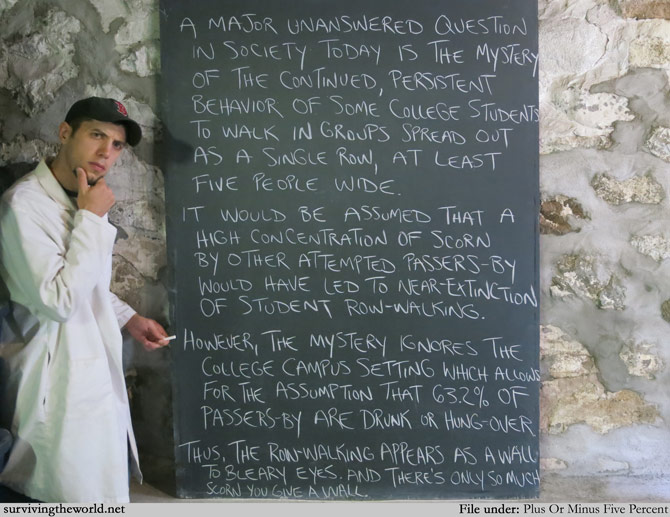 A MAJOR UNANSWERED QUESTION
IN SOCIETY TODAY IS THE MYSTERY
OF THE CONTINUED, PERSISTENT
BEHAVIOR OF SOME COLLEGE STUDENTS
TO WALK IN GROUPS SPREAD OUT
AS A SINGLE ROW, AT LEAST
FIVE PEOPLE WIDE.
IT WOULD BE ASSUMED THAT A
HIGH CONCENTRATION OF SCORN
BY OTHER ATTEMPTED PASSERS-BY
WOULD HAVE LED TO NEAR-EXTINCTION
OF STUDENT ROW-WALKING.
HOWEVER, THE MYSTERY IGNORES THE
COLLEGE CAMPUS SETTING WHICH ALLOWS
FOR THE ASSUMPTION THAT 63.2% OF
PASSERS-BY ARE DRUNK OR HUNG-OVER
THUS, THE ROW-WALKING APPEARS AS A WALL
TO BLEARY EYES. AND THERE'S ONLY SO MUCH
SCORN YOU GIVE A WALL.
survivingtheworld.net
File under: Plus Or Minus Five Percent